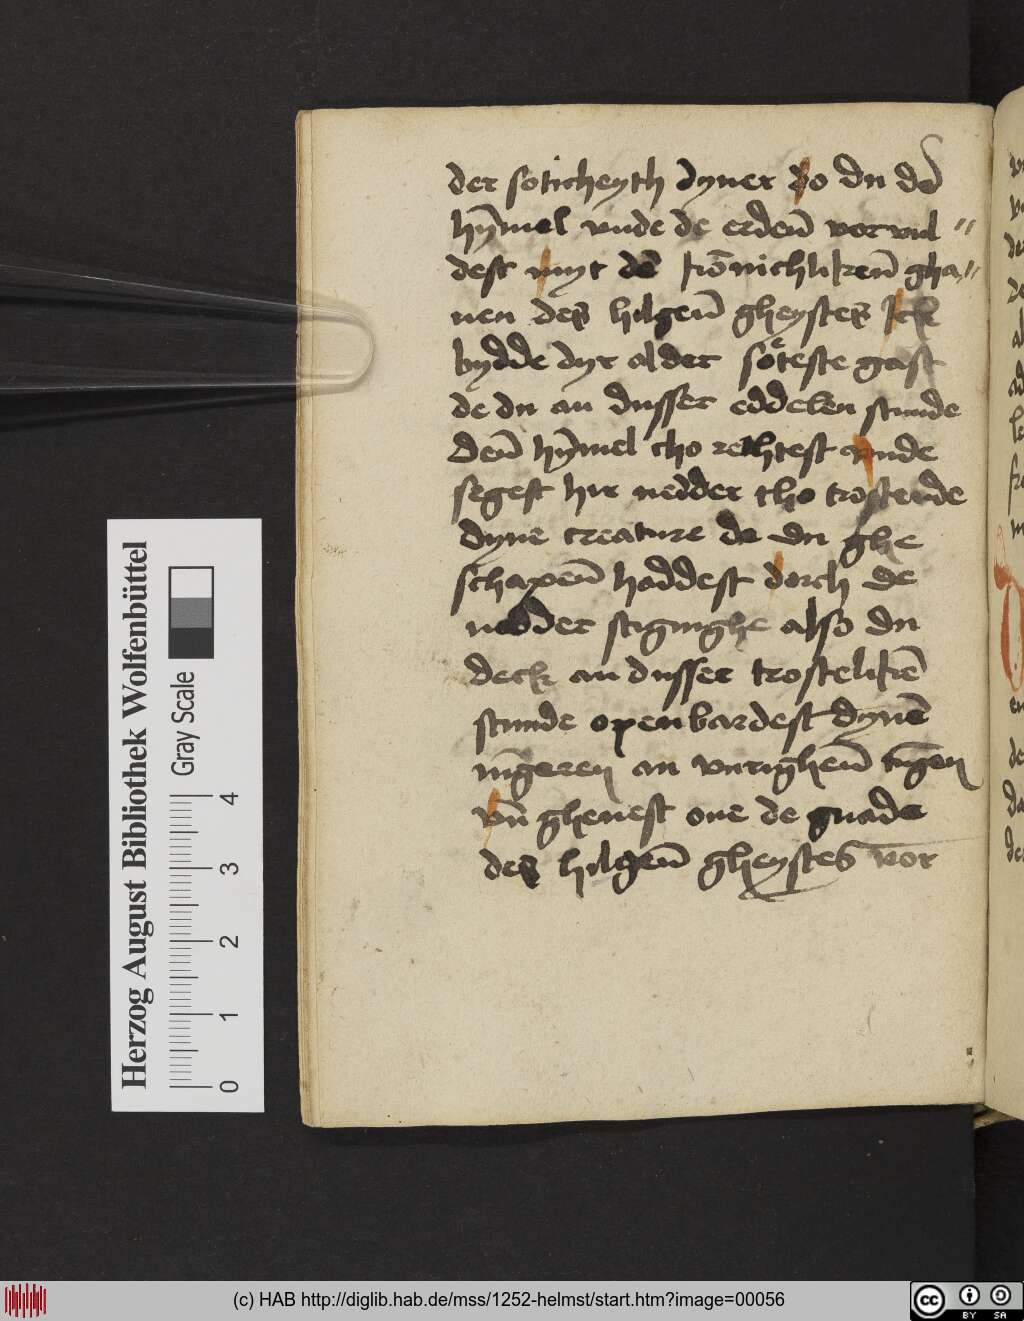 der soticheyth dyner do du dē
hȳmel vnde de erden̄ vorvul〃
dest myt dē frōnichliken̄ gha〃
nen des hilgen̄ gheystes Ick
bydde dyr alder söteste gast
de du an dusser eddelen stunde
den̄ hȳmel tho rethtest vnde
segest hir nedder tho trostende
dyne creature de du ghe
schapen̄ haddest dorch de
nedder stiginghe also du
deck an dusser trostelikē
stunde openbardest dynē
iūgeren an vurighen̄ tūgen
vn̄ gheuest one de gnade
des hilgen̄ gheystes vor
Herzog August Bibliothek Wolfenbüttel
Gray Scale
0 1 2 3 4
(c) HAB http://diglib.hab.de/mss/1252-helmst/start.htm?image=00056
cc BY SA